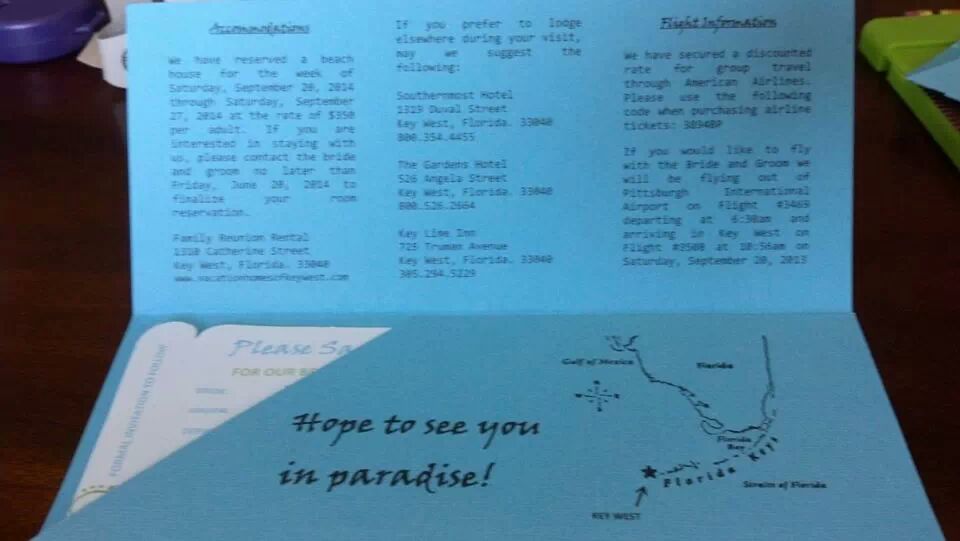 Accommodations
We have reserved a beach
house for the week of
Saturday, September 20, 2014
through Saturday, September
27, 2014 at the rate of $350
per adult. If you are
interested in staying with
us, please contact the bride
and groom no later than
Friday, June 20, 2014 to
finalize your room
reservation.
Family Reunion Rental
1310 Catherine Street
Key West, Florida. 33040
www.vacationhomesofkeywest.com
If you prefer to lodge
elsewhere during your visit,
may we suggest the
following:
Southernmost Hotel
1319 Duval Street
Key West, Florida. 33040
800.354.4455
The Gardens Hotel
526 Angela Street
Key West, Florida. 33040
800.526.2664
Key Lime Inn
725 Truman Avenue
Key West, Florida. 33040
305.294.5229
Flight Information
We have secured a discounted
rate for group travel
through American Airlines.
Please use the following
code when purchasing airline
tickets:
If you would like to fly
with the Bride and Groom we
will be flying out of
Pittsburgh International
Airport on Flight #3469
departing at 6:30am and
arriving in Key West on
Flight #3508 at 10:56am on
Saturday, September 20, 2013
FORMAL INVITATION TO FOLLOW
Please Sa
FOR OUR BE
Hope to see you
in paradise!
Gulf of Mexico
Florida
Florida
Bay
Florida Keys
Straits of Florida
KEY WEST